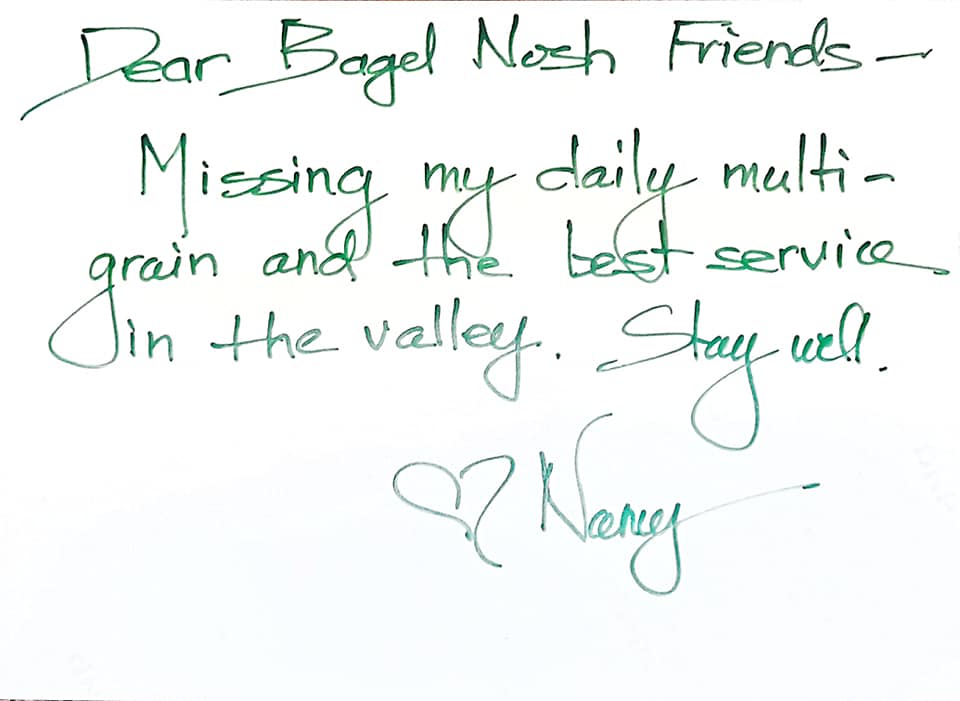 Dear Bagel Nosh Friends—
Missing my daily multi-
grain and the best service
in the valley. Stay well.
♡ Nancy